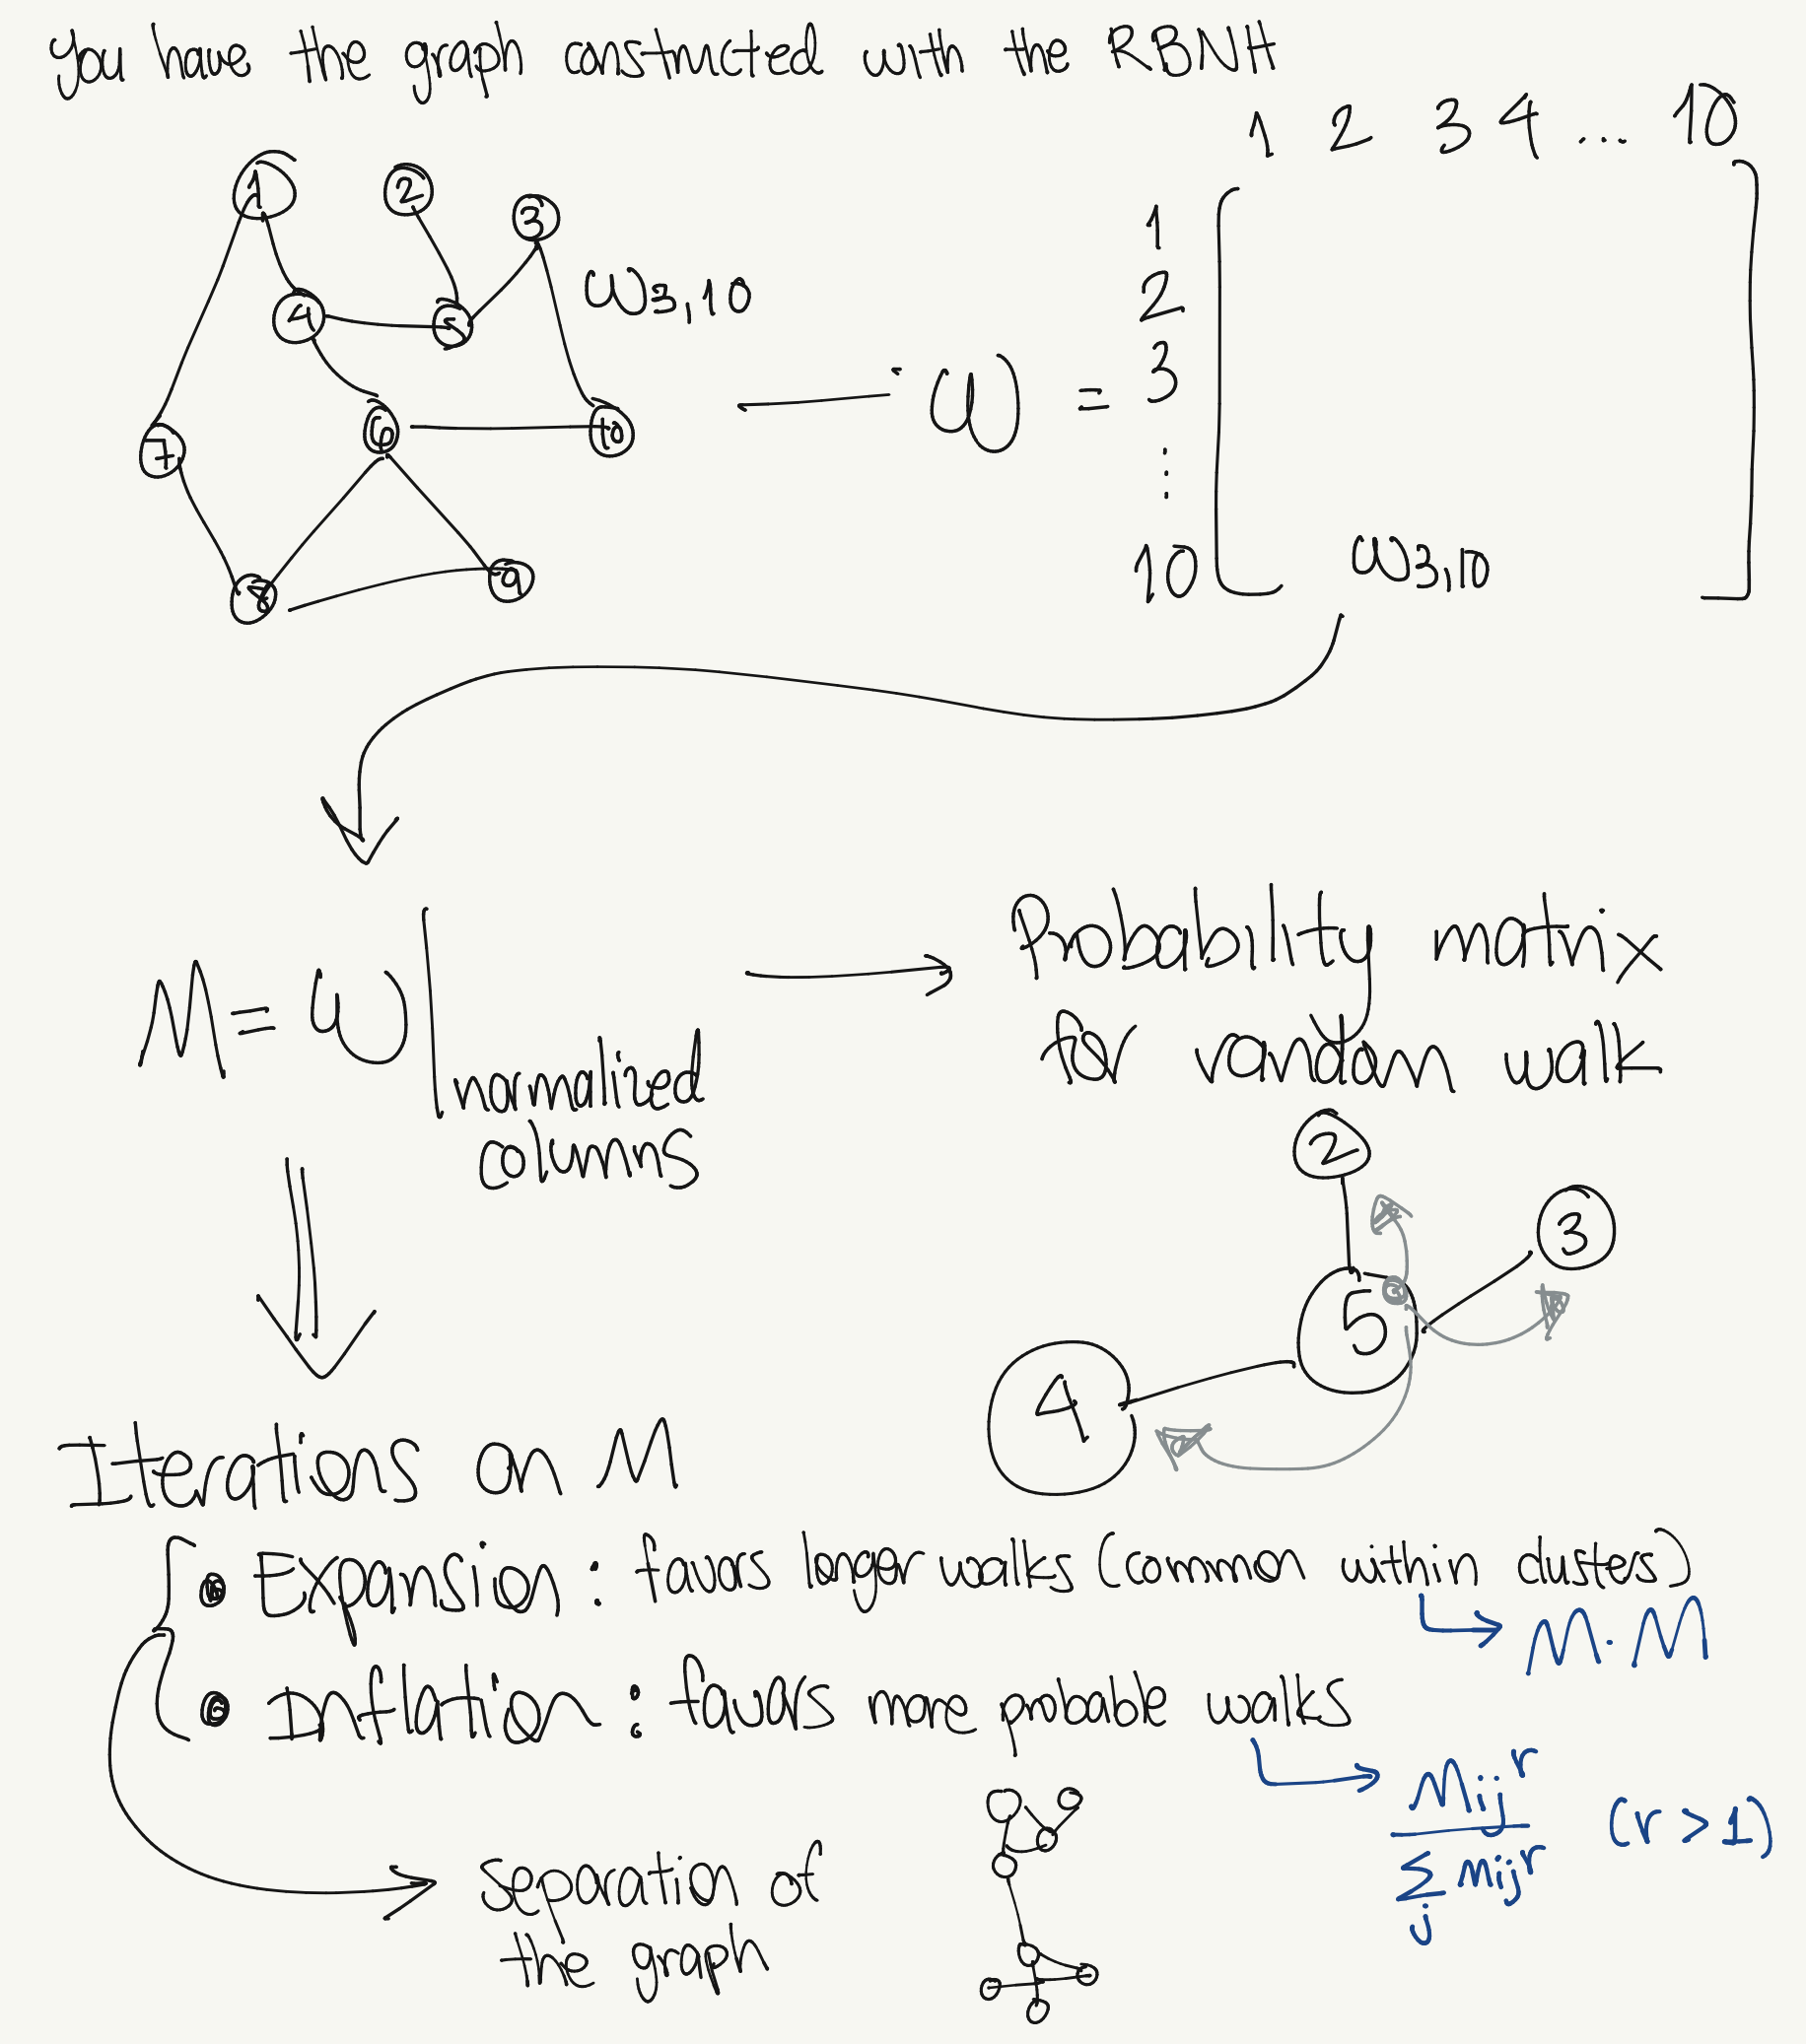 you have the graph constructed with the RBNH
1 2 3 4 ... 10
1
2
3
4
5
6
7
8
9
10
ω3,10
ω =
1
2
3
⋮
10
ω3,10
M = ω | normalized
columns
Probability matrix
for random walk
2
3
5
4
Iterations on M
• Expansion : favors longer walks (common within clusters)
M · M
• Inflation : favors more probable walks
Mij^r
∑j mij^r
(r > 1)
separation of
the graph